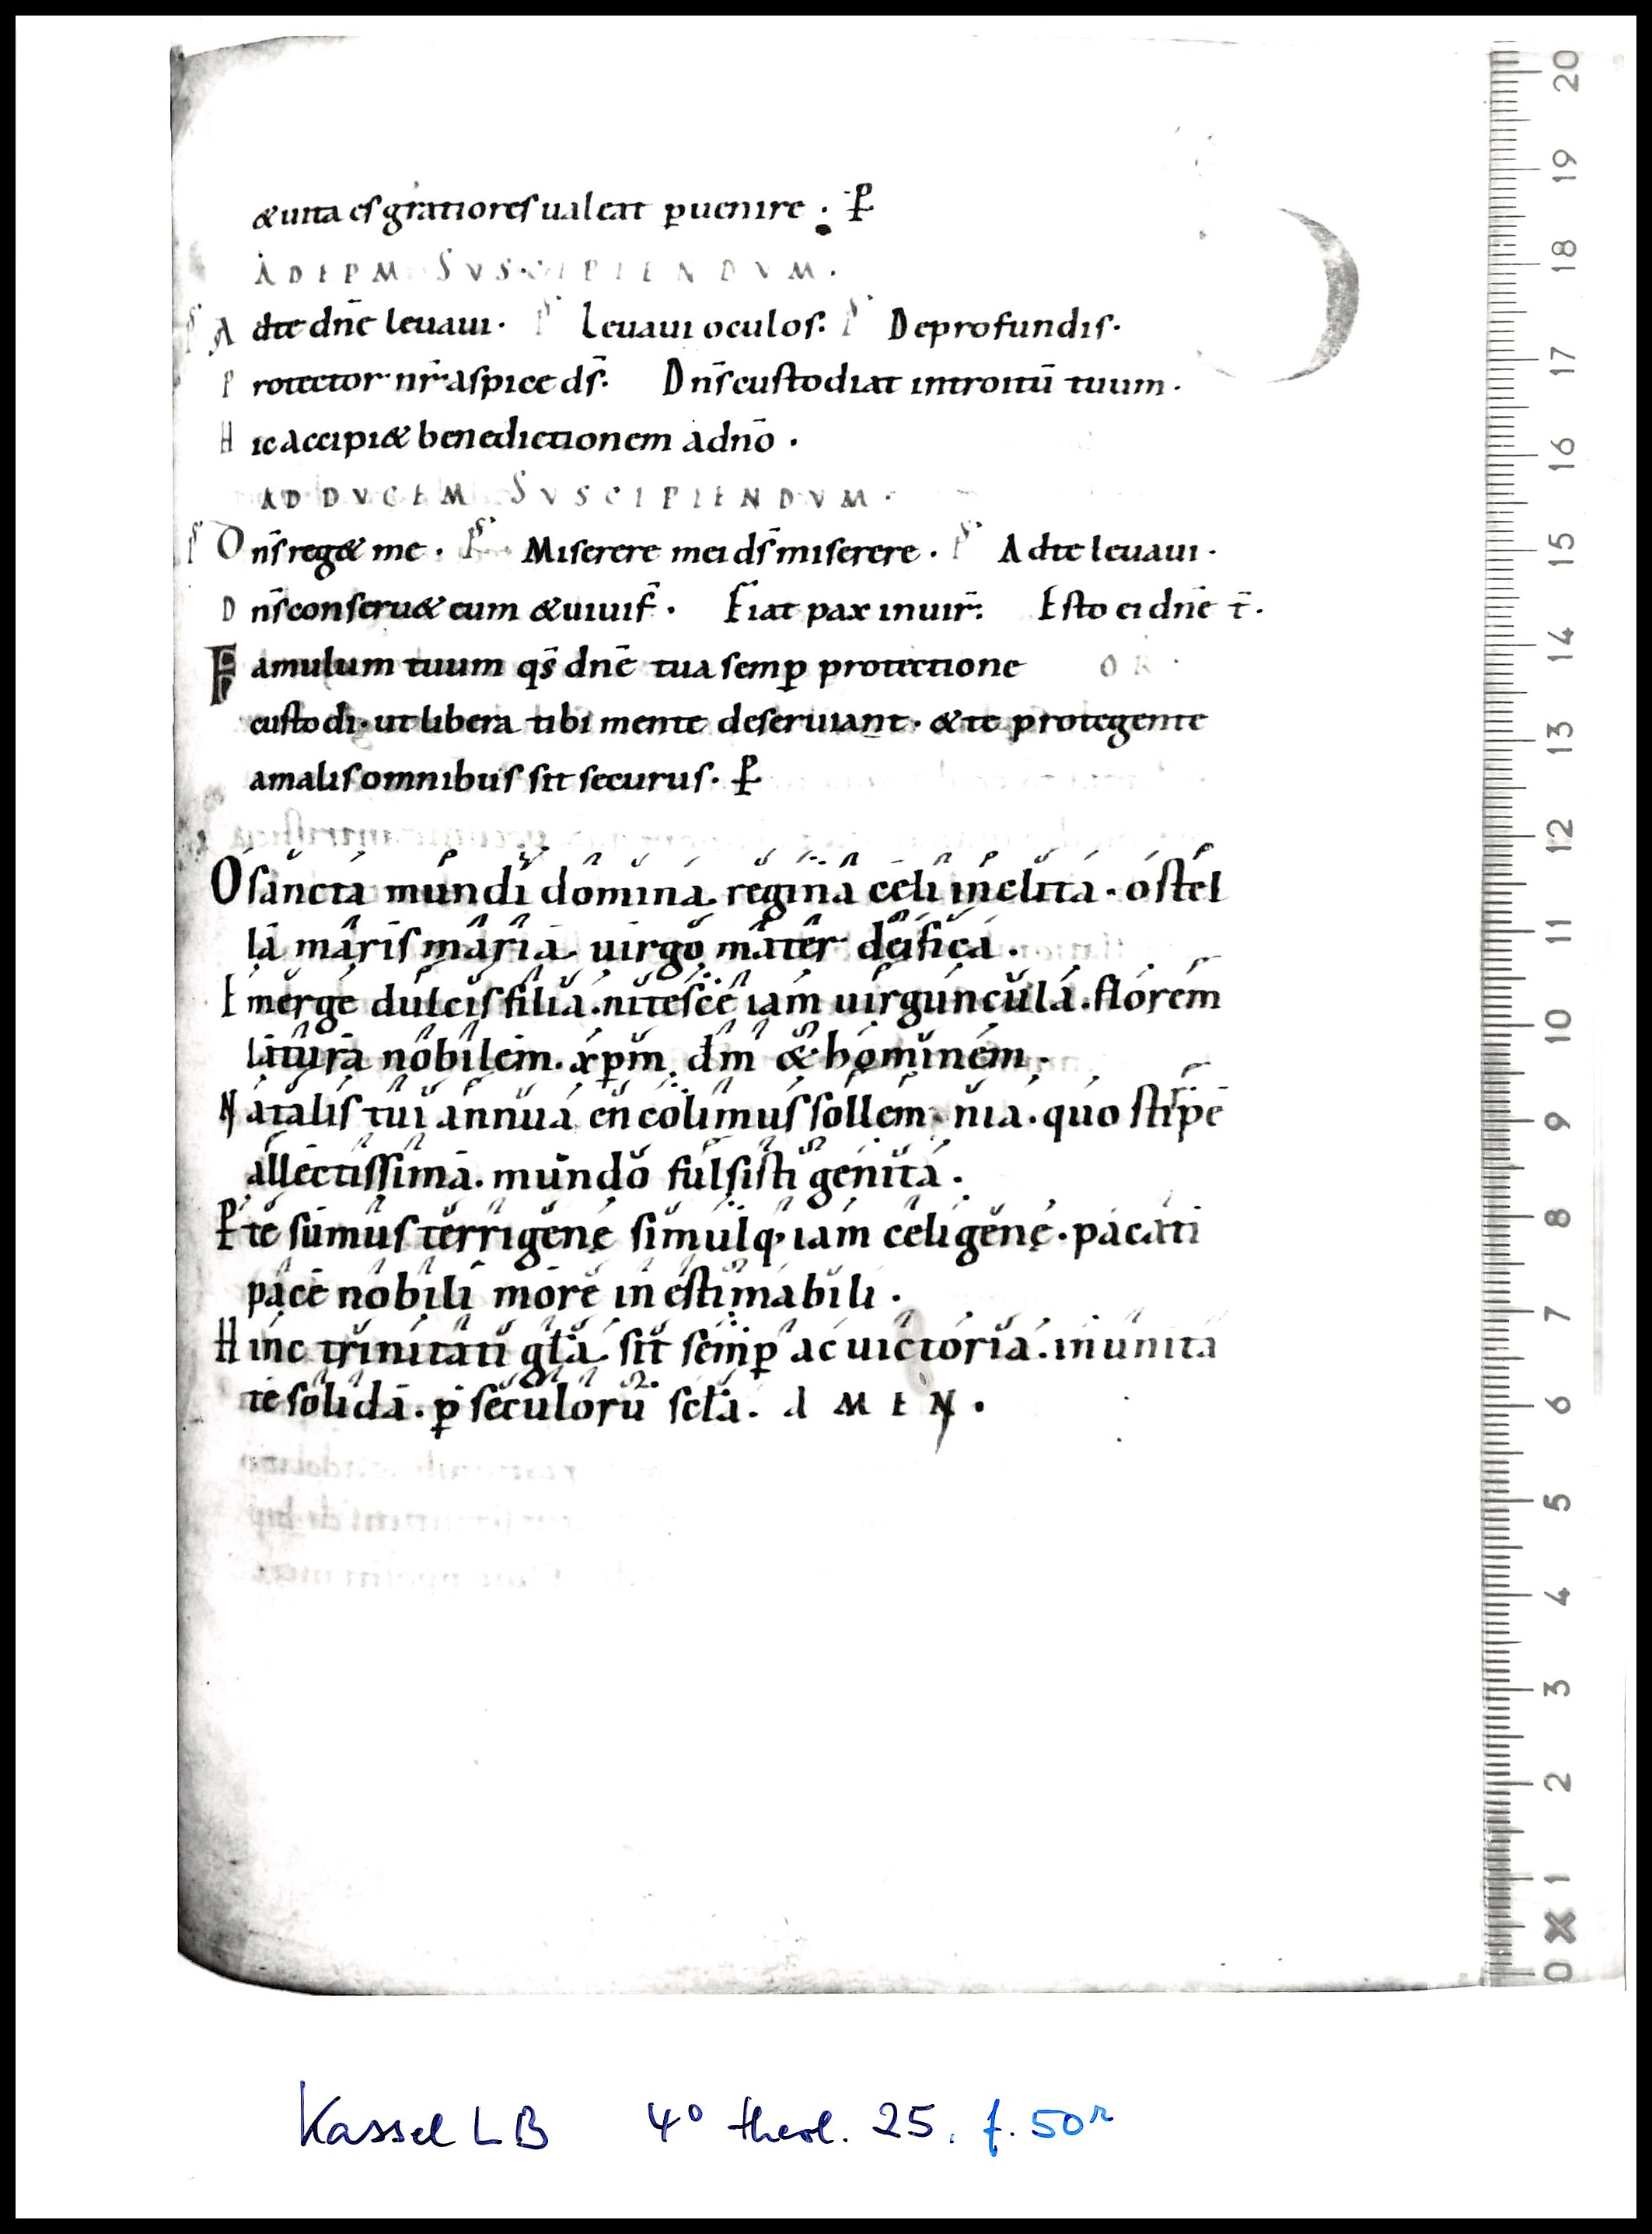 &uita es gratiores ualeat ꝑuenire : P̵
AD EPM SVSCIPIENDVM .
PS Ad te dñe leuaui . PS Leuaui oculos . PS De profundis .
Protector nr̄ aspice ds̄ . Dn̄s custodiat introitū tuum .
Hic accipi& benedictionem a dn̄o .
AD DVCEM SVSCIPIENDVM .
PS Dn̄s reg& me . PS Miserere mei ds̄ miserere . PS Ad te leuaui .
Dn̄s conseru& eum & uiuif̄ . Fiat pax in uir̄ . Esto ei dn̄e t̄ .
Famulum tuum qs̄ dn̄e tua semꝑ protectione OR .
custodi . ut libera tibi mente deseruiant . & te protegente
a malis omnibus sit securus . P̵
O sancta mundi domina . regina celi inclita . o stel
la maris maria . uirgo mater deifica .
Emerge dulcis filia . nitesce iam uirguncula . florem
latura nobilem . xp̄m dm̄ & hominem .
Natalis tui annua en colimus sollemnia . quo stirpe
allectissima . mundo fulsisti genita .
P te sumus terrigenę simulq; iam celigenę . pacati
pace nobili more inestimabili .
Hinc trinitati gl̄a sit semꝑ ac uictoria . in unita
te solida . ꝑ seculorū scl̄a . AMEN .
Kassel LB 4° theol. 25, f. 50r
0 1 2 3 4 5 6 7 8 9 10 11 12 13 14 15 16 17 18 19 20